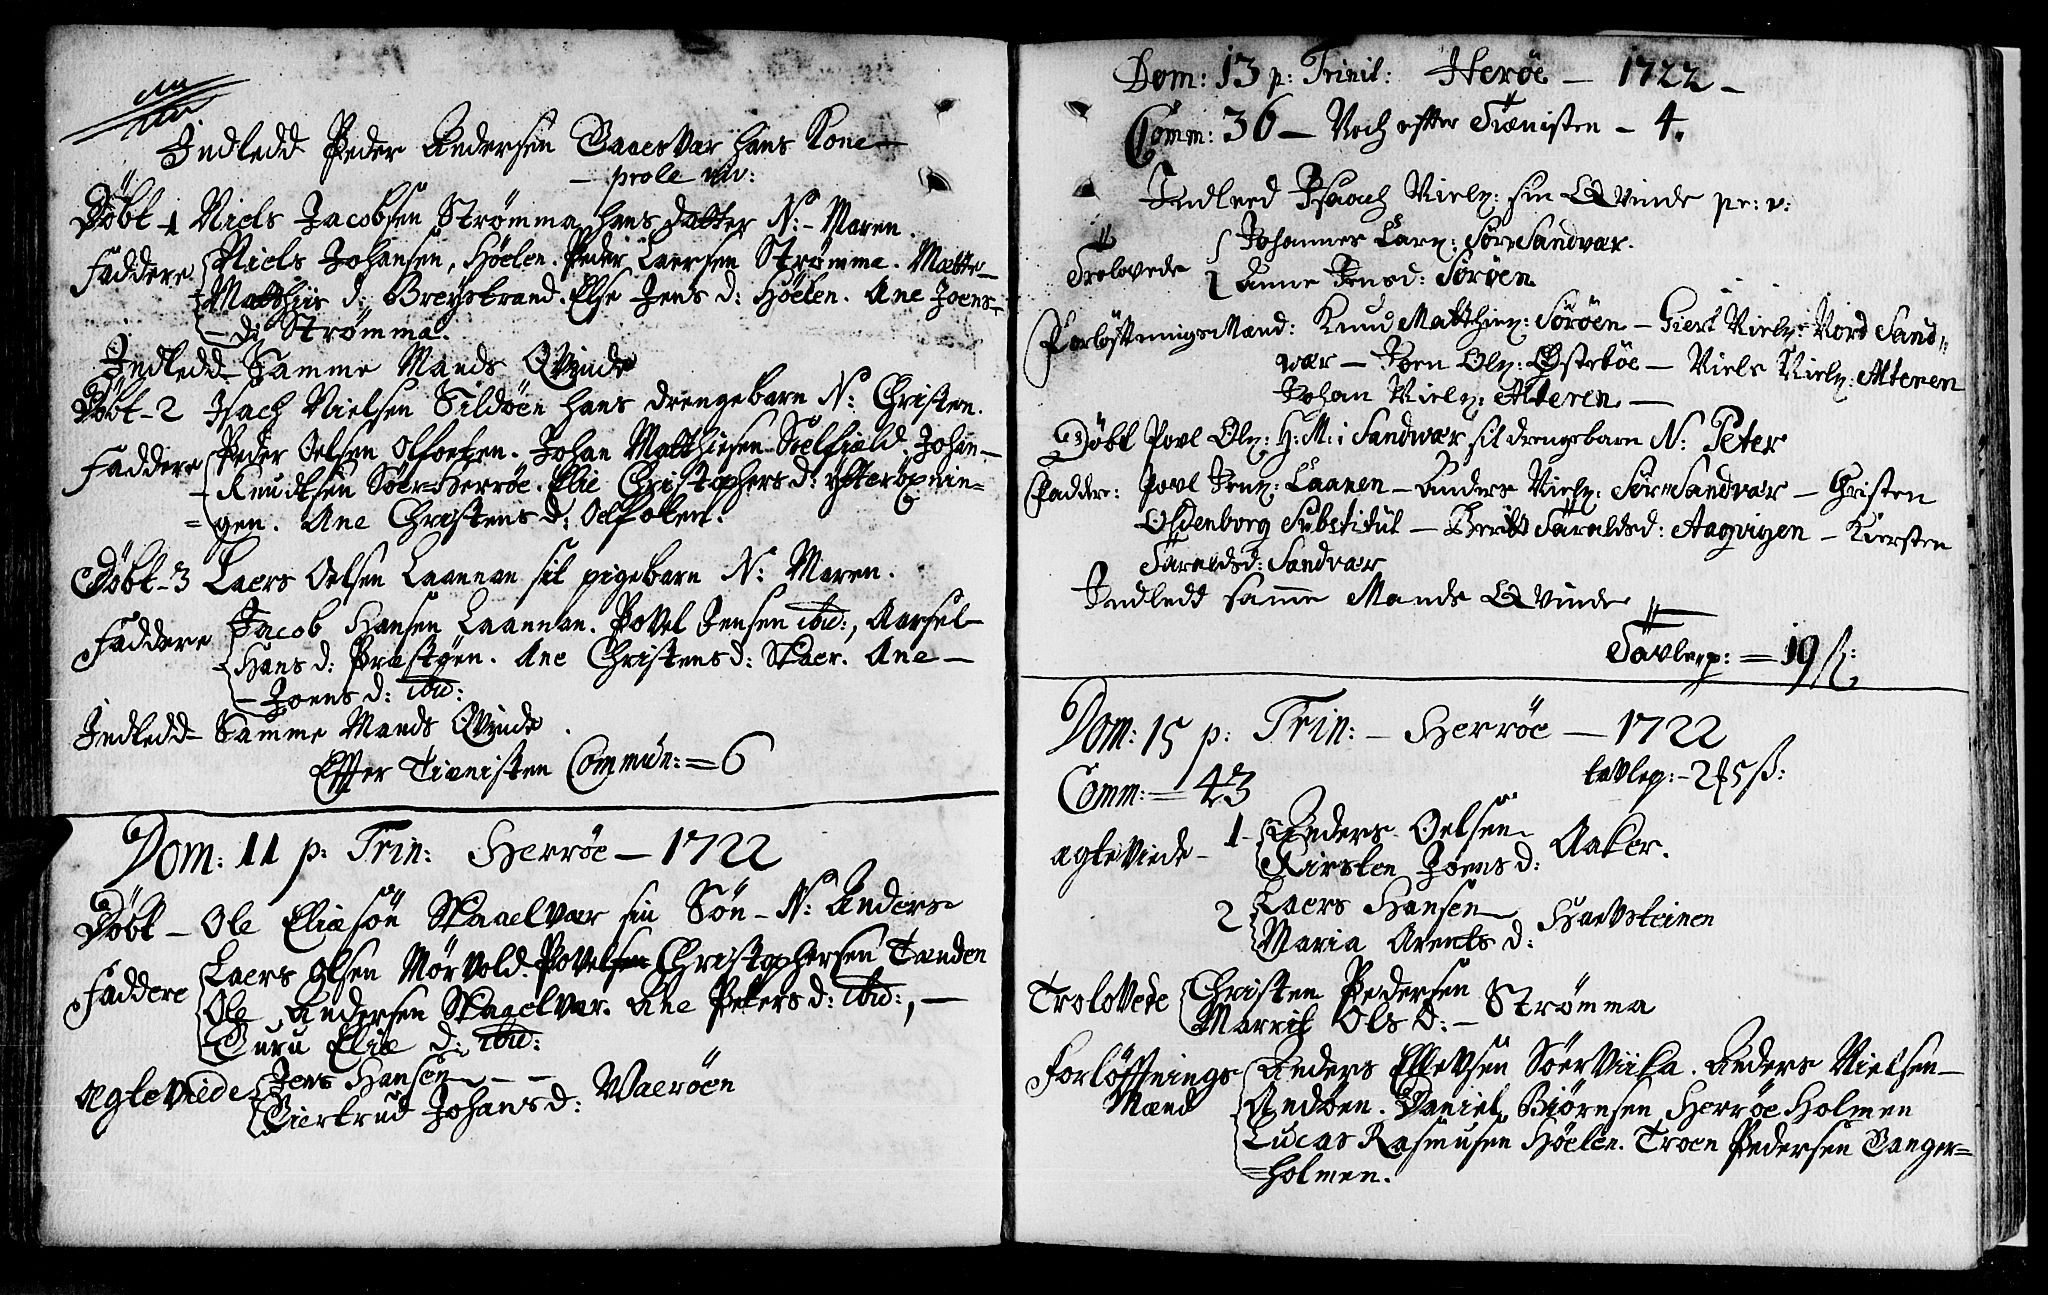 Indledd Peder Andersen Gaaesvær hans Kone
– prole viv:
Døbt 1 Niels Jacobsen Strømma hans datter N: – Maren.
Faddere Niels Johansen, Høelen. Peder Laersen Strømma. Mætte
Matthiis d: Breystrand. Else Jens d: Høelen. Ane Joens
– d: Strømma.
Indledd Samme Mands Qvinde
Døbt – 2 Isach Nielsen Sildøen hans drengebarn N: Christen.
Faddere Peder Oelsen Olfoeten. Johan Matthiesen Stelfiæld. Johan
Knudtsen Søer Herrøe. Elie Christophers d: ytterøpnin=
= gen. Ane Christens d: Oelfoten.
Døbt – 3 Laers Oelsen Laannan sit pigebarn N: Maren.
Faddere Jacob Hansen Laannan. Povel Jensen ibid:, Aarsel
Hans d: Præstøen. Ane Christens d: Skaer. Ane –
– Joens d: ibid:
Indledd – Samme Mands Qvinde.
Effter Tienisten Commun: = 6
Dom: 11 p: Trin: Herrøe – 1722
Døbt – Ole Eliæsøn Skaaelvær sin Søn – N: Anders
Faddere Laers Olsen Mørvold. Povelsen Christophersen Tanden
Ole Andersen Skagelvær. Ane Peters d: ibid:, –
Guru Eliæ d: ibid:
Ægteviede Jens Hansen – –
Giertrud Johans d: Waerøen
Dom: 13 p: Trinit: Herøe – 1722 –
Comm: 36 – Noch effter Tiænisten – 4.
Indleed Isaach Nielß: sin Qvinde pr: v:
Trolovede Johannes Larß: Sør Sandvær.
Anne Jensd: Sørøen
Forløffningsmænd: Knud Matthiß: Sørøen – Giert Nielß: Nord Sand"
vær – Joen Olß: Østebøe – Niels Nielß: Alteren
Johan Nielß: Alteren –
Døbt Povl Olß: H: M: i Sandvær sit drengebarn N: Peter
Faddere: Povl Jenß: Laanen – Anders Nielß: Sør Sandvær – Christen
Oldenborg Substitut – Berit Haraldsd: Aagvigen – Kiersten
Haraldsd: Sandvær
Indledd samme Mands Qvinde
Tavlep: = 19 ß:
Dom: 15 p: Trin: – Herrøe – 1722
Comm: = 43
tavlep: – 2 # 5 ß:
Ægteviede – 1 Anders Oelsen
Kirsten Joens d: Aaker.
2 Laers Hansen
Maria Arents d: Haevsteinen
Trolovede Christen Pedersen
Marrit Ols d: – Strømma
Forløffnings Anders Ellevsen Søerviika. Anders Nielsen
Mænd Andøen. Daniel Biørnsen Herrøe Holmen
Lucas Rasmusen Høelen. Troen Pedersen Tanger=
= holmen.